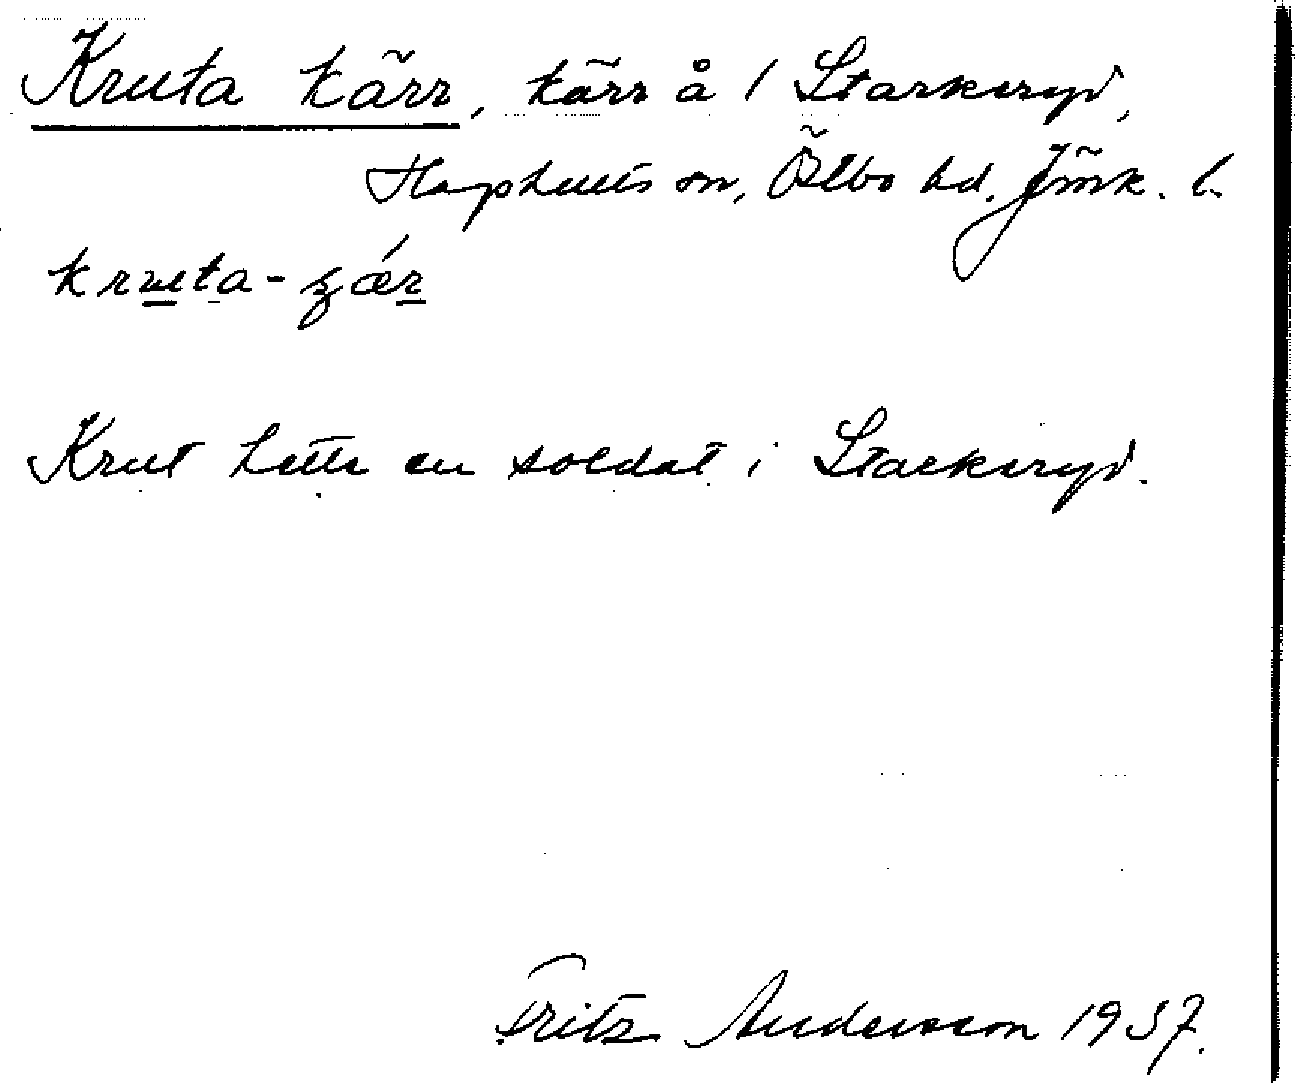 Kruta kärr, kärr å 1 Starkeryd,
Haghults sn, Östbo hd. Jönk. l.
kruta-
Krut hette en soldat i Starkeryd.
Fritz Andersson 1937.